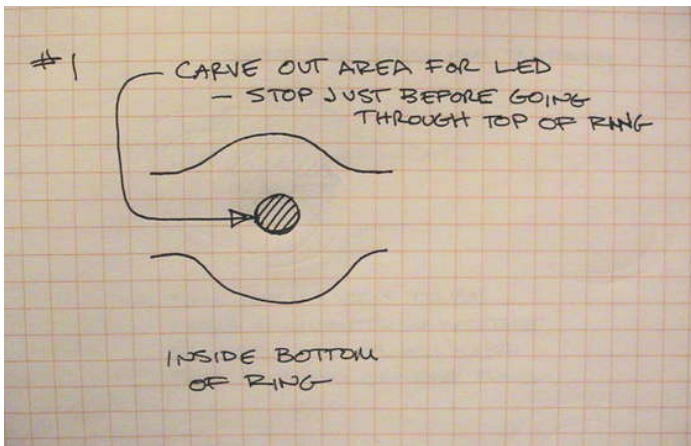 #1
CARVE OUT AREA FOR LED
- STOP JUST BEFORE GOING
THROUGH TOP OF RING
INSIDE BOTTOM
OF RING